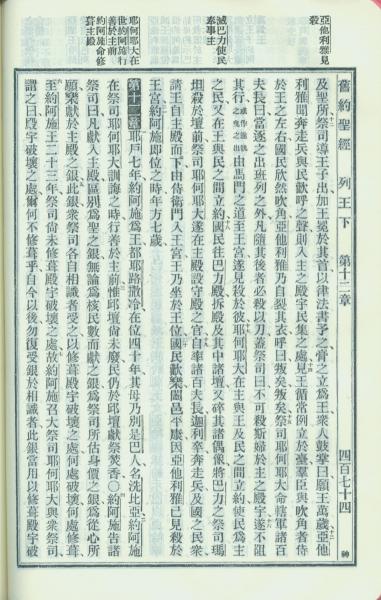 舊約聖經 列王下 第十二章 四百七十四 神
亞他利雅見殺
滅巴力使民奉事主
耶何耶大在世約阿施行善於主前
約阿施命修葺主殿
及聖所祭司導王子出加王冕於其首以律法書予之膏之立爲王衆人鼓掌曰願王萬歲亞他
利雅聞奔走兵與民歡呼之聲則入主之殿宇民集之處見王循常例立於臺羣臣與吹角者侍
於王之左右國民欣然吹角亞他利雅乃自裂其衣呼曰叛矣叛矣祭司耶何耶大命轄軍諸百
夫長曰當逐之出班列之外凡隨其後者必殺以刀蓋祭司曰不可殺斯婦於主之殿宇遂不阻
其行由馬門之道至王宮遂見殺於彼耶何耶大在主與王及民之間立約使民爲主
之民又在王與民之間立約國民往巴力殿拆毀及其中諸壇又碎其諸偶像將巴力之祭司瑪
坦殺於壇前祭司耶何耶大遂在主殿設守殿之官自率諸百夫長迦利卒奔走兵及國之民衆
請王自主殿而下由侍衛門入王宮王乃坐於王位國民歡樂闔邑平康因亞他利雅已見殺於
王宮約阿施卽位之時年方七歲
第十二章 耶戶七年約阿施爲王都耶路撒冷在位四十年其母乃別是巴人名洗比亞約阿施
在祭司耶何耶大訓誨之時行善於主前惟邱壇尚未廢民仍於邱壇獻祭焚香〇約阿施告諸
祭司曰凡獻入主殿區別爲聖之銀無論爲核民數而獻之銀爲祭司所估身價之銀爲從心所
願樂獻於主殿之銀此銀衆祭司各自相識者受之以修葺殿宇破壞之處何處破壞何處修葺
至約阿施王二十三年祭司尚未修葺殿宇破壞之處故約阿施召大祭司耶何耶大與衆祭司
謂之曰殿宇破壞之處爾何不修葺乎自今以後勿復受銀於相識者此銀當用以修葺殿宇破